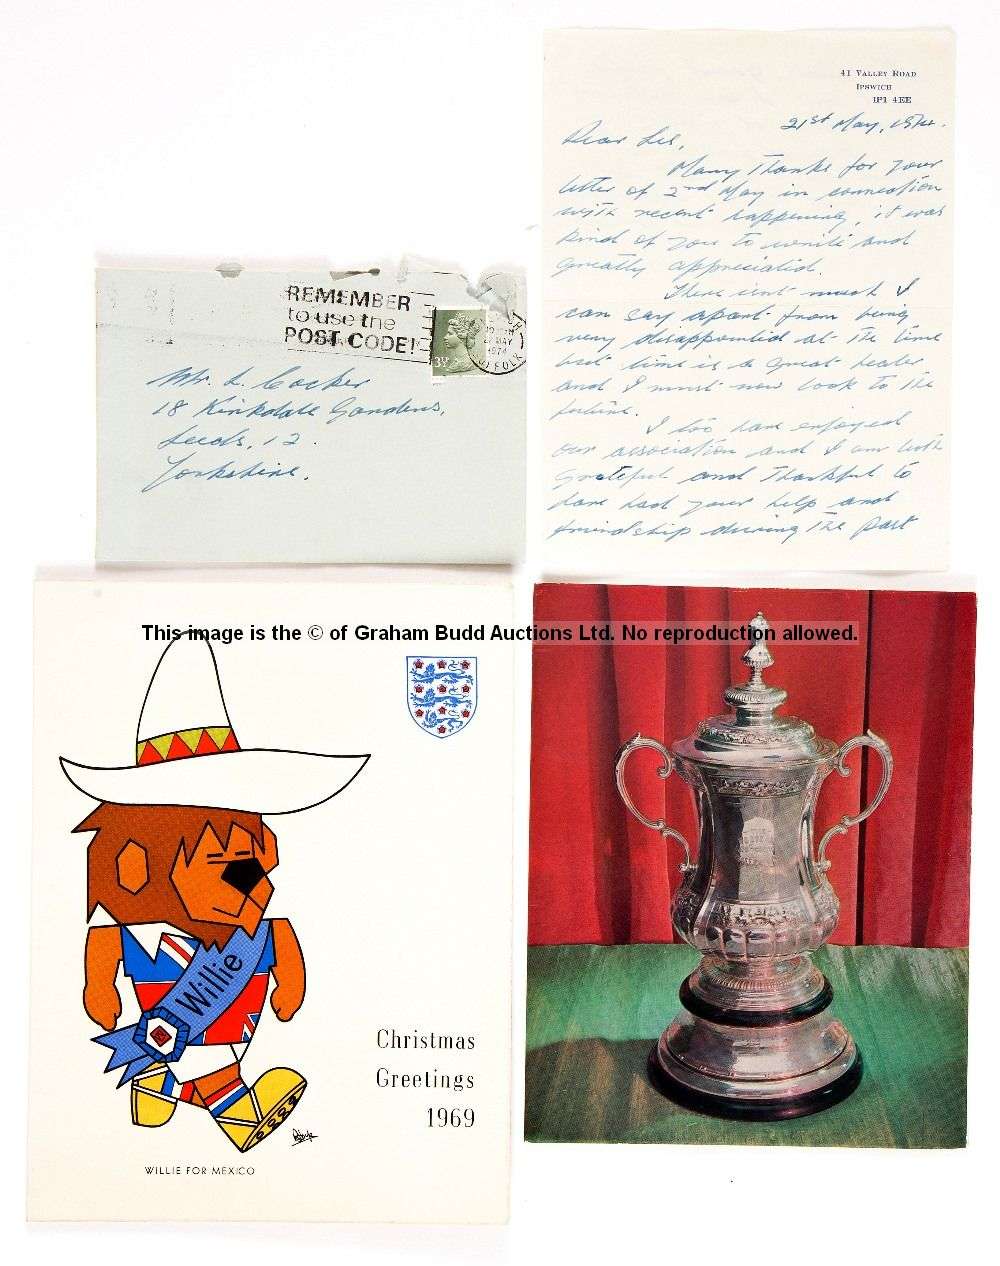 41 Valley Road
Ipswich
IP1 4EE
21st May, 1974.
Dear Les,
Many Thanks for your
letter of 2nd May in connection
with recent happening, it was
kind of you to write and
greatly appreciated.
There isnt much I
can say apart from being
very disappointed at the time
but time is a great healer
and I must now look to the
future.
I too have enjoyed
our association and I am both
grateful and Thankful to
have had your help and
friendship during the past
REMEMBER
to use the
POST CODE!
MAY
1974
SUFFOLK
Mr. L. Cocker
18 Kirkdale Gardens,
Leeds, 12.
Yorkshire.
This image is the © of Graham Budd Auctions Ltd. No reproduction allowed.
Willie
Christmas
Greetings
1969
WILLIE FOR MEXICO